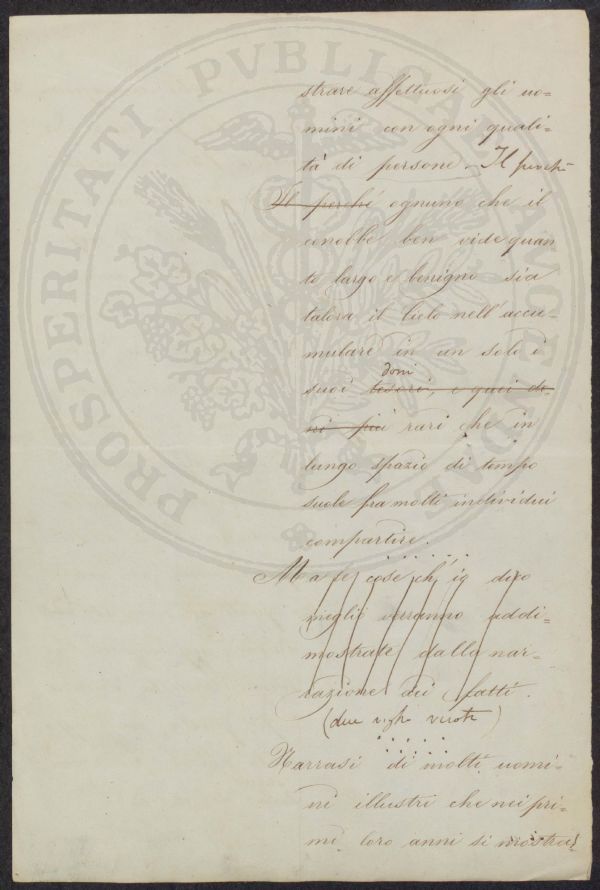 strare affettuosi gli uo=
mini con ogni quali=
tà di persone. Il perchè
Il perchè ognuno che il
conobbe ben vide quan
to largo e benigno sia
talora il Cielo nell'accu=
mulare in un solo i
doni
suoi tesori, e quei do=
ni più rari che in
lungo spazio di tempo
suole fra molti individui
compartire.
Ma le cose ch'io dico
meglio verranno addi=
mostrate dalla nar=
razione dei fatti.
(due righe vuote)
Narrasi di molti uomi=
ni illustri che nei pri=
mi loro anni si
PROSPERITATI PVBLICAE AVGENDAE